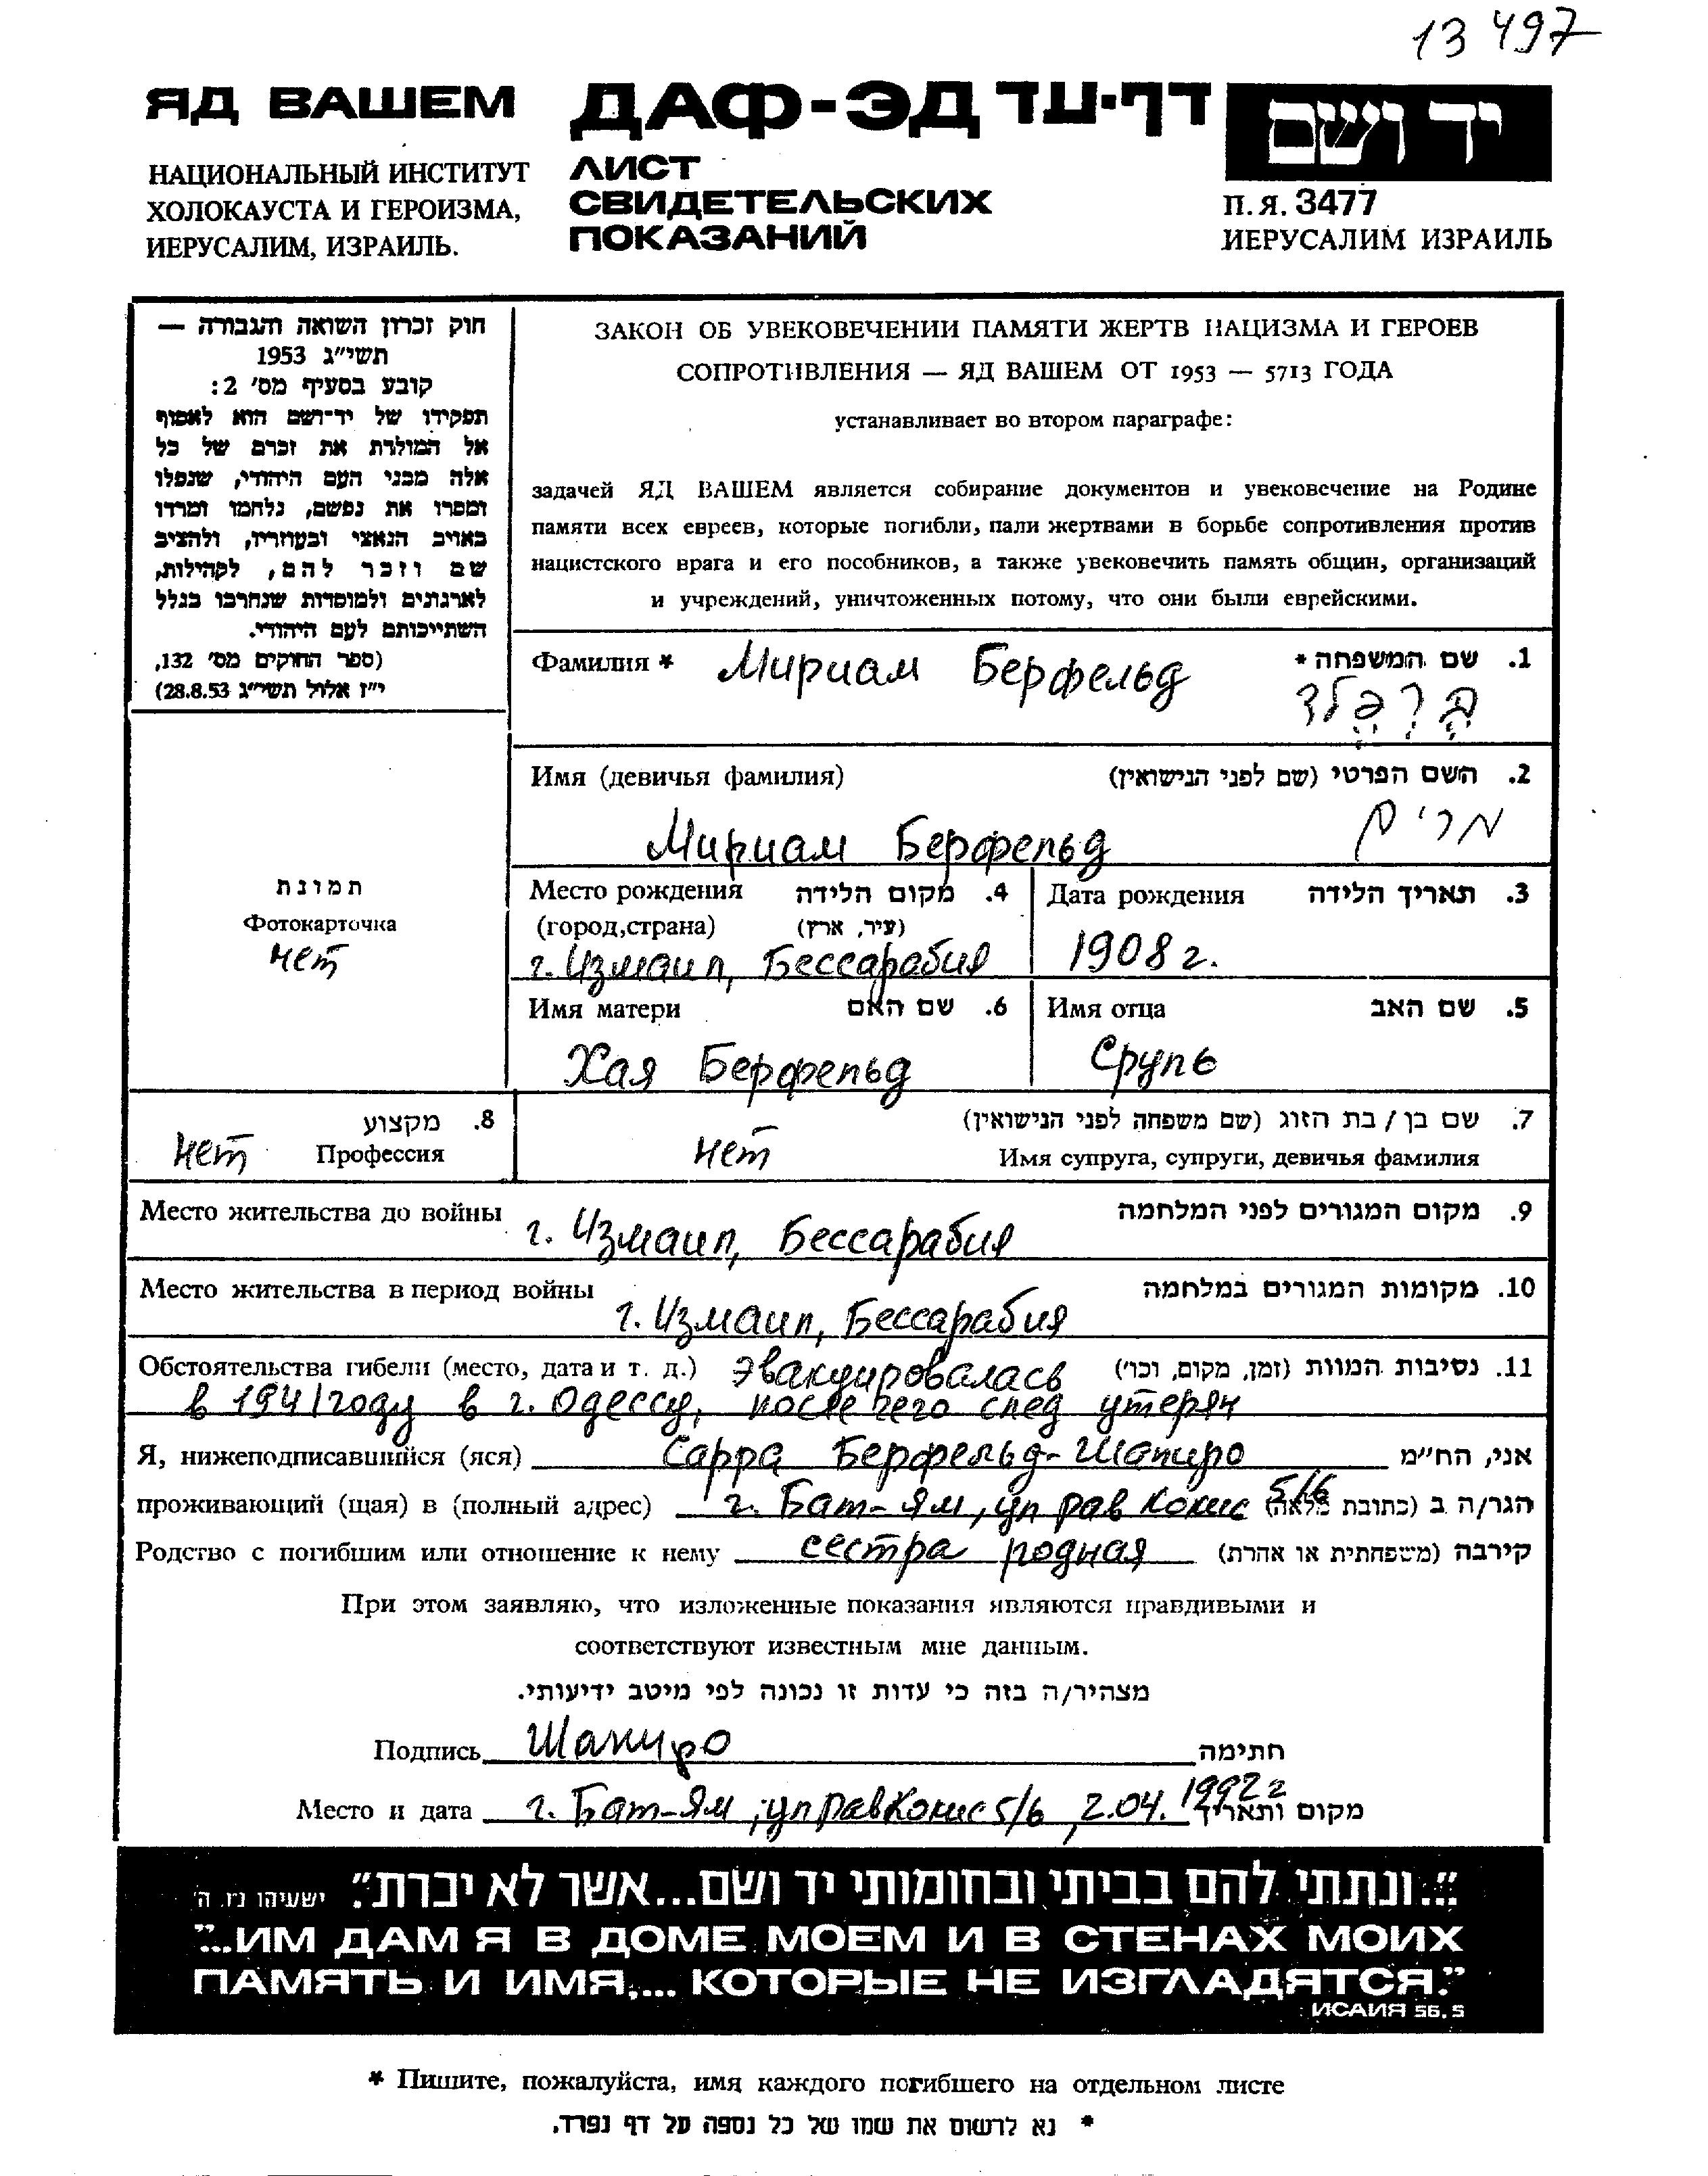 13 497
ЯД ВАШЕМ
НАЦИОНАЛЬНЫЙ ИНСТИТУТ
ХОЛОКАУСТА И ГЕРОИЗМА,
ИЕРУСАЛИМ, ИЗРАИЛЬ.
ДАФ-ЭД דף-עד
ЛИСТ
СВИДЕТЕЛЬСКИХ
ПОКАЗАНИЙ
יד ושם
П.Я. 3477
ИЕРУСАЛИМ ИЗРАИЛЬ
חוק זכרון השואה והגבורה —
תשי"ג 1953
קובע בסעיף מס' 2:
תפקידו של יד-ושם הוא לאסוף
אל המולדת את זכרם של כל
אלה מבני העם היהודי, שנפלו
ומסרו את נפשם, נלחמו ומרדו
באויב הנאצי ובעוזריו, ולהציב
שם וזכר להם, לקהילות,
לארגונים ולמוסדות שנחרבו בגלל
השתייכותם לעם היהודי.
(ספר החוקים מס' 132,
י"ז אלול תשי"ג 28.8.53)
ЗАКОН ОБ УВЕКОВЕЧЕНИИ ПАМЯТИ ЖЕРТВ НАЦИЗМА И ГЕРОЕВ
СОПРОТИВЛЕНИЯ — ЯД ВАШЕМ ОТ 1953 — 5713 ГОДА
устанавливает во втором параграфе:
задачей ЯД ВАШЕМ является собирание документов и увековечение на Родине
памяти всех евреев, которые погибли, пали жертвами в борьбе сопротивления против
нацистского врага и его пособников, а также увековечить память общин, организаций
и учреждений, уничтоженных потому, что они были еврейскими.
Фамилия * Мириам Берфельд 1. שם המשפחה *
ברפלד
Имя (девичья фамилия) 2. השם הפרטי (שם לפני הנישואין)
Мириам Берфельд מרים
תמונת
Фотокарточка
нет
Место рождения 4. מקום הלידה
(город,страна) (עיר, ארץ)
г. Измаил, Бессарабия
Дата рождения 3. תאריך הלידה
1908 г.
Имя матери 6. שם האם
Хая Берфельд
Имя отца 5. שם האב
Сруль
8. מקצוע
нет Профессия
7. שם בן / בת הזוג (שם משפחה לפני הנישואין)
нет Имя супруга, супруги, девичья фамилия
Место жительства до войны 9. מקום המגורים לפני המלחמה
г. Измаил, Бессарабия
Место жительства в период войны 10. מקומות המגורים במלחמה
г. Измаил, Бессарабия
Обстоятельства гибели (место, дата и т. д.) эвакуировалась 11. נסיבות המוות (זמן, מקום, וכו')
в 1941 году в г. Одессу, после чего след утерян
Я, нижеподписавшийся (яся) Сарра Берфельд-Шапиро אני, הח"מ
проживающий (щая) в (полный адрес) г. Бат-Ям, ул рав Кокис 5/6 הגר/ה ב (כתובת מלאה)
Родство с погибшим или отношение к нему сестра родная קירבה (משפחתית או אחרת)
При этом заявляю, что изложенные показания являются правдивыми и
соответствуют известным мне данным.
מצהיר/ה בזה כי עדות זו נכונה לפי מיטב ידיעותי.
Подпись Шапиро חתימה
Место и дата г. Бат-Ям, ул рав Кокис 5/6, 2.04. 1992 г מקום ותאריך
"...ונתתי להם בביתי ובחומותי יד ושם...אשר לא יכרת". ישעיהו נו, ה'
"...ИМ ДАМ Я В ДОМЕ МОЕМ И В СТЕНАХ МОИХ
ПАМЯТЬ И ИМЯ,... КОТОРЫЕ НЕ ИЗГЛАДЯТСЯ."
ИСАИЯ 56, 5
* Пишите, пожалуйста, имя каждого погибшего на отдельном листе
* נא לרשום את שמו של כל נספה על דף נפרד.